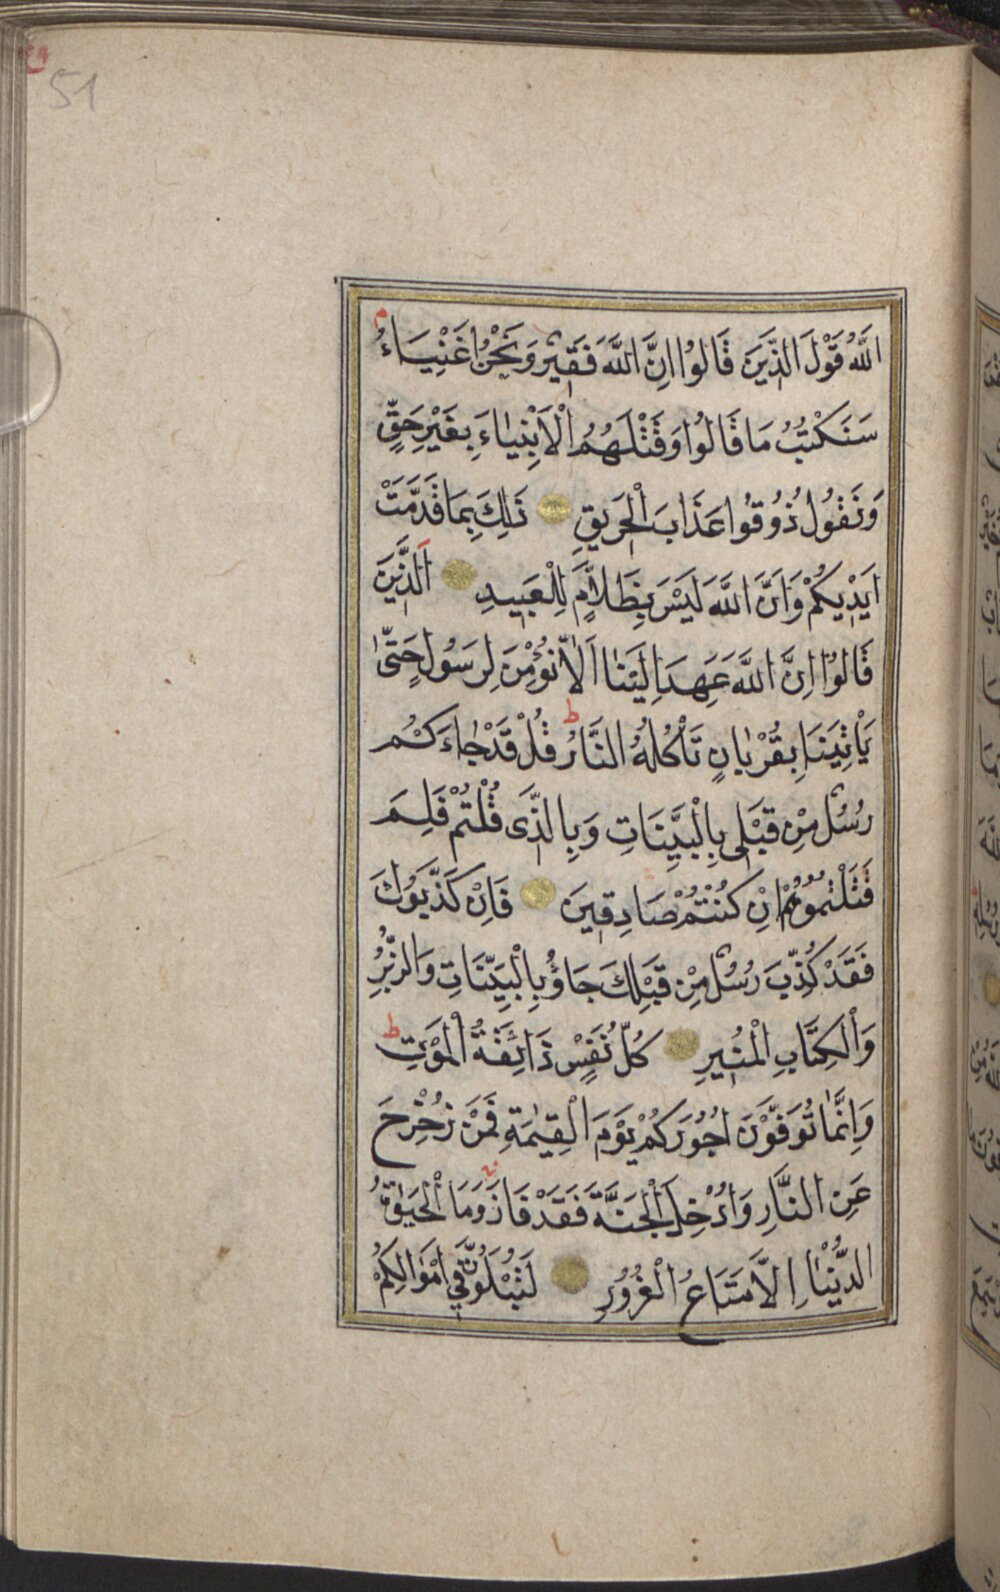 51
اللّٰهُ قَوْلَ الَّذِينَ قَالُوا اِنَّ اللّٰهَ فَقِيرٌ وَنَحْنُ اَغْنِيَاءُ م
سَنَكْتُبُ مَا قَالُوا وَقَتْلَهُمُ الْاَنْبِيَاءَ بِغَيْرِ حَقٍّ
وَنَقُولُ ذُوقُوا عَذَابَ الْحَرِيقِ ذٰلِكَ بِمَا قَدَّمَتْ
اَيْدِيكُمْ وَاَنَّ اللّٰهَ لَيْسَ بِظَلَّامٍ لِلْعَبِيدِ اَلَّذِينَ
قَالُوا اِنَّ اللّٰهَ عَهِدَ اِلَيْنَا اَلَّا نُؤْمِنَ لِرَسُولٍ حَتّٰى
يَأْتِيَنَا بِقُرْبَانٍ تَأْكُلُهُ النَّارُ ط قُلْ قَدْ جَاءَكُمْ
رُسُلٌ مِنْ قَبْلِى بِالْبَيِّنَاتِ وَبِالَّذِى قُلْتُمْ فَلِمَ
قَتَلْتُمُوهُمْ اِنْ كُنْتُمْ صَادِقِينَ فَاِنْ كَذَّبُوكَ
فَقَدْ كُذِّبَ رُسُلٌ مِنْ قَبْلِكَ جَاؤُ بِالْبَيِّنَاتِ وَالزُّبُرِ
وَالْكِتَابِ الْمُنِيرِ كُلُّ نَفْسٍ ذَائِقَةُ الْمَوْتِ ط
وَاِنَّمَا تُوَفَّوْنَ اُجُورَكُمْ يَوْمَ الْقِيٰمَةِ فَمَنْ زُحْزِحَ
عَنِ النَّارِ وَاُدْخِلَ الْجَنَّةَ فَقَدْ فَازَ وَمَا الْحَيٰوةُ
الدُّنْيَا اِلَّا مَتَاعُ الْغُرُورِ لَتُبْلَوُنَّ فِى اَمْوَالِكُمْ